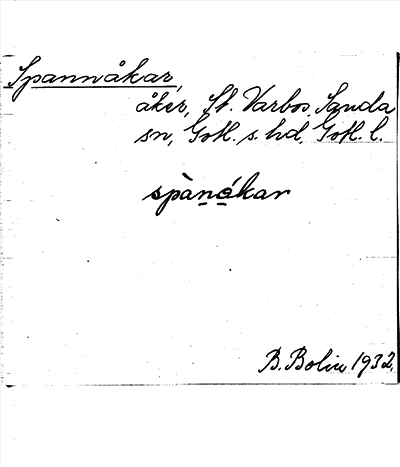 Spannåkar,
åker, St. Varbos, Sanda
sn, Gotl. s. hd, Gotl. l.
spànåkar
B. Bolin 1932.